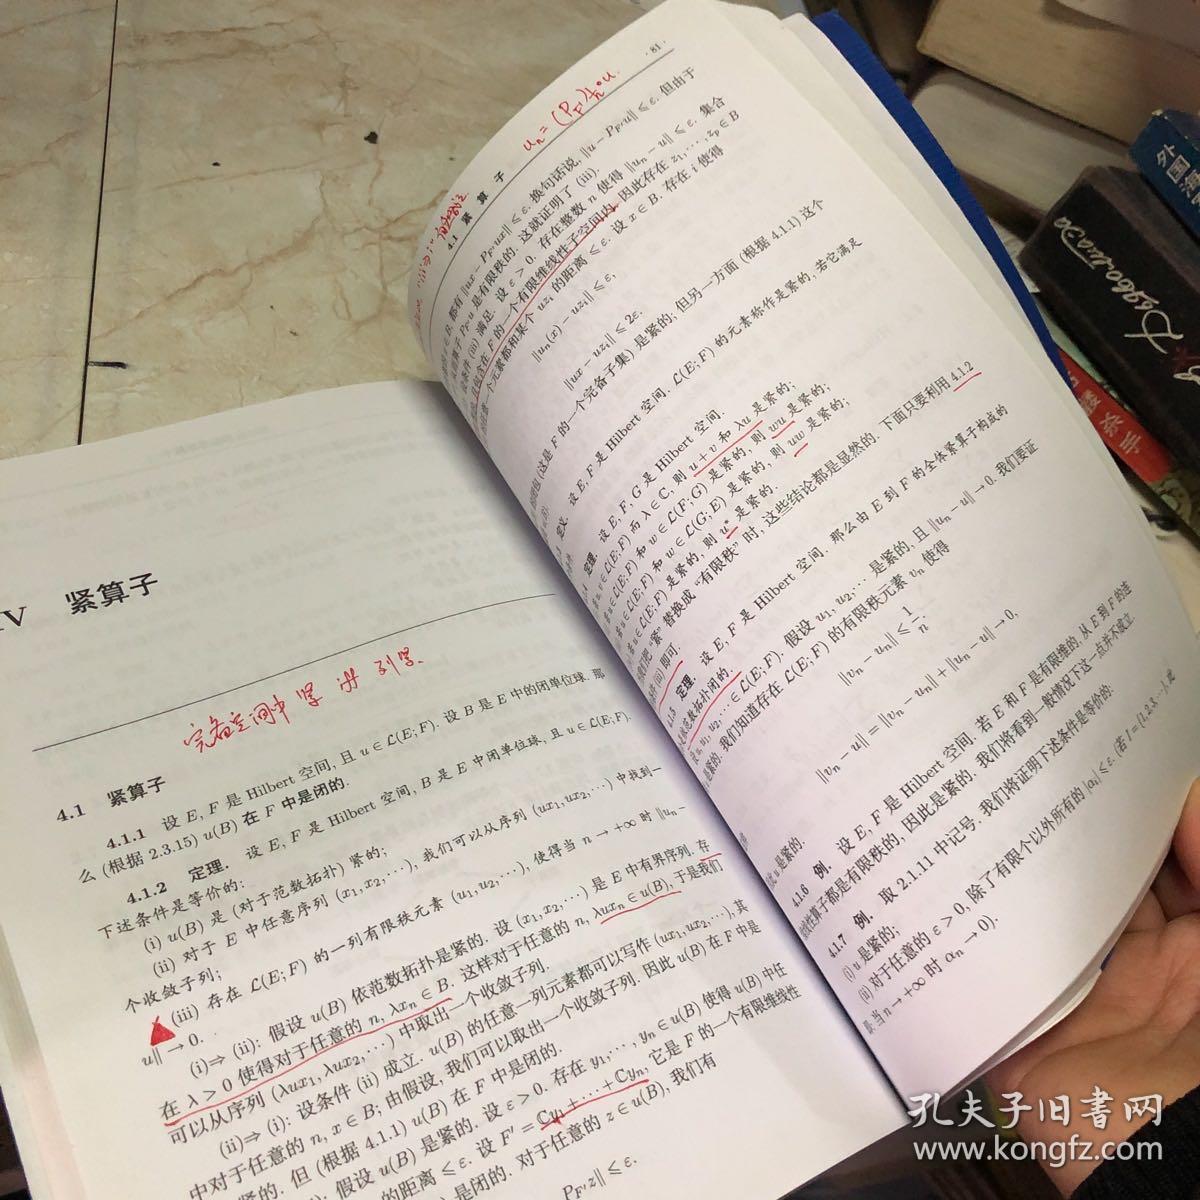 IV 紧算子
完备空间中紧
4.1 紧算子
4.1.1 设 E, F 是 Hilbert 空间, 且 u ∈ L(E; F). 设 B 是 E 中的闭单位球. 那
么 (根据 2.3.15) u(B) 在 F 中是闭的.
4.1.2 定理. 设 E, F 是 Hilbert 空间, B 是 E 中闭单位球, 且 u ∈ L(E; F).
下述条件是等价的:
(i) u(B) 是 (对于范数拓扑) 紧的;
(ii) 对于 E 中任意序列 (x₁, x₂, ⋯), 我们可以从序列 (ux₁, ux₂, ⋯) 中找到一
个收敛子列;
(iii) 存在 L(E; F) 的一列有限秩元素 (u₁, u₂, ⋯), 使得当 n → +∞ 时 ‖uₙ −
u‖ → 0.
(i)⇒ (ii): 假设 u(B) 依范数拓扑是紧的. 设 (x₁, x₂, ⋯) 是 E 中有界序列. 存
在 λ > 0 使得对于任意的 n, λxₙ ∈ B. 这样对于任意的 n, λuxₙ ∈ u(B), 于是我们
可以从序列 (λux₁, λux₂, ⋯) 中取出一个收敛子列.
(ii)⇒ (i): 设条件 (ii) 成立. u(B) 的任意一列元素都可以写作 (ux₁, ux₂, ⋯), 其
中对于任意的 n, x ∈ B; 由假设, 我们可以取出一个收敛子列. 因此 u(B) 在 F 中是
紧的. 但 (根据 4.1.1) u(B) 在 F 中是闭的.
假设 u(B) 是紧的. 设 ε > 0. 存在 y₁, ⋯, yₙ ∈ u(B) 使得 u(B) 中任
的距离 ≤ ε. 设 F′ = Cy₁ + ⋯ + Cyₙ, 它是 F 的一个有限维线性
是闭的. 对于任意的 z ∈ u(B), 我们有
P_F′z‖ ≤ ε.
· 81 ·
4.1 紧算子
都有 ‖ux − P_F′ux‖ ≤ ε. 换句话说, ‖u − P_F′u‖ ≤ ε. 但由于
算子 P_F′u 是有限秩的. 这就证明了 (iii).
条件 (iii) 满足. 设 ε > 0. 存在整数 n 使得 ‖uₙ − u‖ ≤ ε. 集合
包含在 F 的一个有限维线性子空间内, 因此存在 z₁, ⋯, zₚ ∈ B
个元素都和某个 uzᵢ 的距离 ≤ ε. 设 x ∈ B. 存在 i 使得
‖uₙ(x) − uzᵢ‖ ≤ ε,
‖ux − uzᵢ‖ ≤ 2ε.
(这是 F 的一个完备子集) 是紧的; 但另一方面 (根据 4.1.1) 这个
定义. 设 E, F 是 Hilbert 空间. L(E; F) 的元素称作是紧的, 若它满足
定理. 设 E, F, G 是 Hilbert 空间.
u, v ∈ L(E; F) 而 λ ∈ C, 则 u + v 和 λu 是紧的;
u ∈ L(E; F) 和 w ∈ L(F; G) 是紧的, 则 wu 是紧的;
u ∈ L(E; F) 和 w ∈ L(G; E) 是紧的, 则 uw 是紧的;
u ∈ L(E; F) 是紧的, 则 u* 是紧的.
“紧” 替换成 “有限秩” 时, 这些结论都是显然的. 下面只要利用 4.1.2
(iii) 即可.
4.1.5 定理. 设 E, F 是 Hilbert 空间. 那么由 E 到 F 的全体紧算子构成的
范数拓扑闭的.
u, u₁, u₂, ⋯ ∈ L(E; F). 假设 u₁, u₂, ⋯ 是紧的, 且 ‖uₙ − u‖ → 0. 我们要证
是紧的. 我们知道存在 L(E; F) 的有限秩元素 vₙ 使得
‖vₙ − uₙ‖ ≤ 1/n.
‖vₙ − u‖ = ‖vₙ − uₙ‖ + ‖uₙ − u‖ → 0,
u 是紧的.
4.1.6 例. 设 E, F 是 Hilbert 空间. 若 E 和 F 是有限维的, 从 E 到 F 的连
续线性算子都是有限秩的, 因此是紧的. 我们将看到一般情况下这一点并不成立.
4.1.7 例. 取 2.1.11 中记号. 我们将证明下述条件是等价的:
(i) u 是紧的;
(ii) 对于任意的 ε > 0, 除了有限个 i 以外所有的 |αᵢ| ≤ ε. (若 I = {1, 2, 3, ⋯}, 或
当 n → +∞ 时 αₙ → 0).
外国
孔夫子旧书网
www.kongfz.com